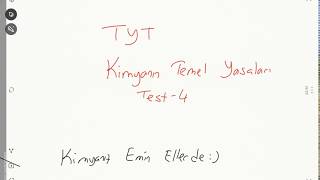 TYT
Kimyanın Temel Yasaları
Test-4
Kimyanız Emin Ellerde :)